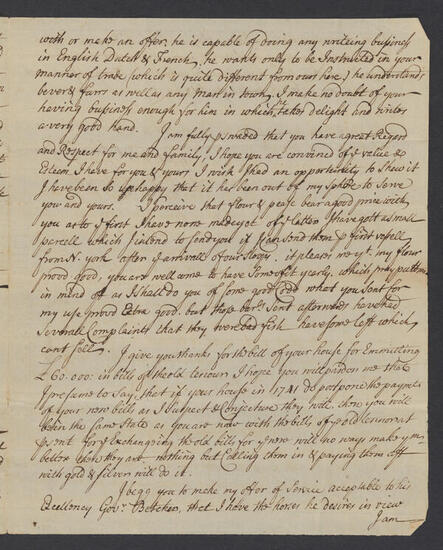 with or make an offer, he is capable of doing any writeing bussiness
in English Dutch & French, he wants only to be Instructed in your
manner of trade (which is quite different from ours here) he understands
bever & furrs as well as any man in town, I make no doubt of your
having bussiness enough for him in which he takes delight and writes
a very good hand.
I am fully p'swaded that you have a great Regard
and Respect for me and family, I hope you are convinced of ye value &
Esteem I have for you & yours I wish I had an opportunity to shew it
I have been so unhappy that it has been out of my sphere to serve
you and yours. I perceive that flour & pease bear a good price with
you as to ye first I have none made yet of ye latter I have gott a small
parcell which I intend to send you if I can send them p first vessell
from N: york after ye arrivall of our sloop. it pleases me yt my flour
proved good, you are wellcome to have some of it yearly, which pray putt me
in mind off as I shall do you of some good Codd what you sent for
my use proved Extra good. but those sent afterwards have had
severall Complaints that they were bad fish I have some left which
cant sell.
I give you thanks for the bill of your house for Emmitting
£60.000: in bills of the old tenour I hope you will pardon me that
I presume to say, that if your house in 1741 do postpone the paymt
of your new bills as I suspect & conjecture they will, then you will
be in the same state as you are now with the bills of ye old tennor at
p'sent for ye Exchangeing the old bills for ye new will no ways make ym
better than they are nothing but Calling them in & paying them off
with gold & silver will do it.
I begg you to make my offer of service acceptable to his
Excellency Govr: Belcher, that I have the horses he desires in view
I am